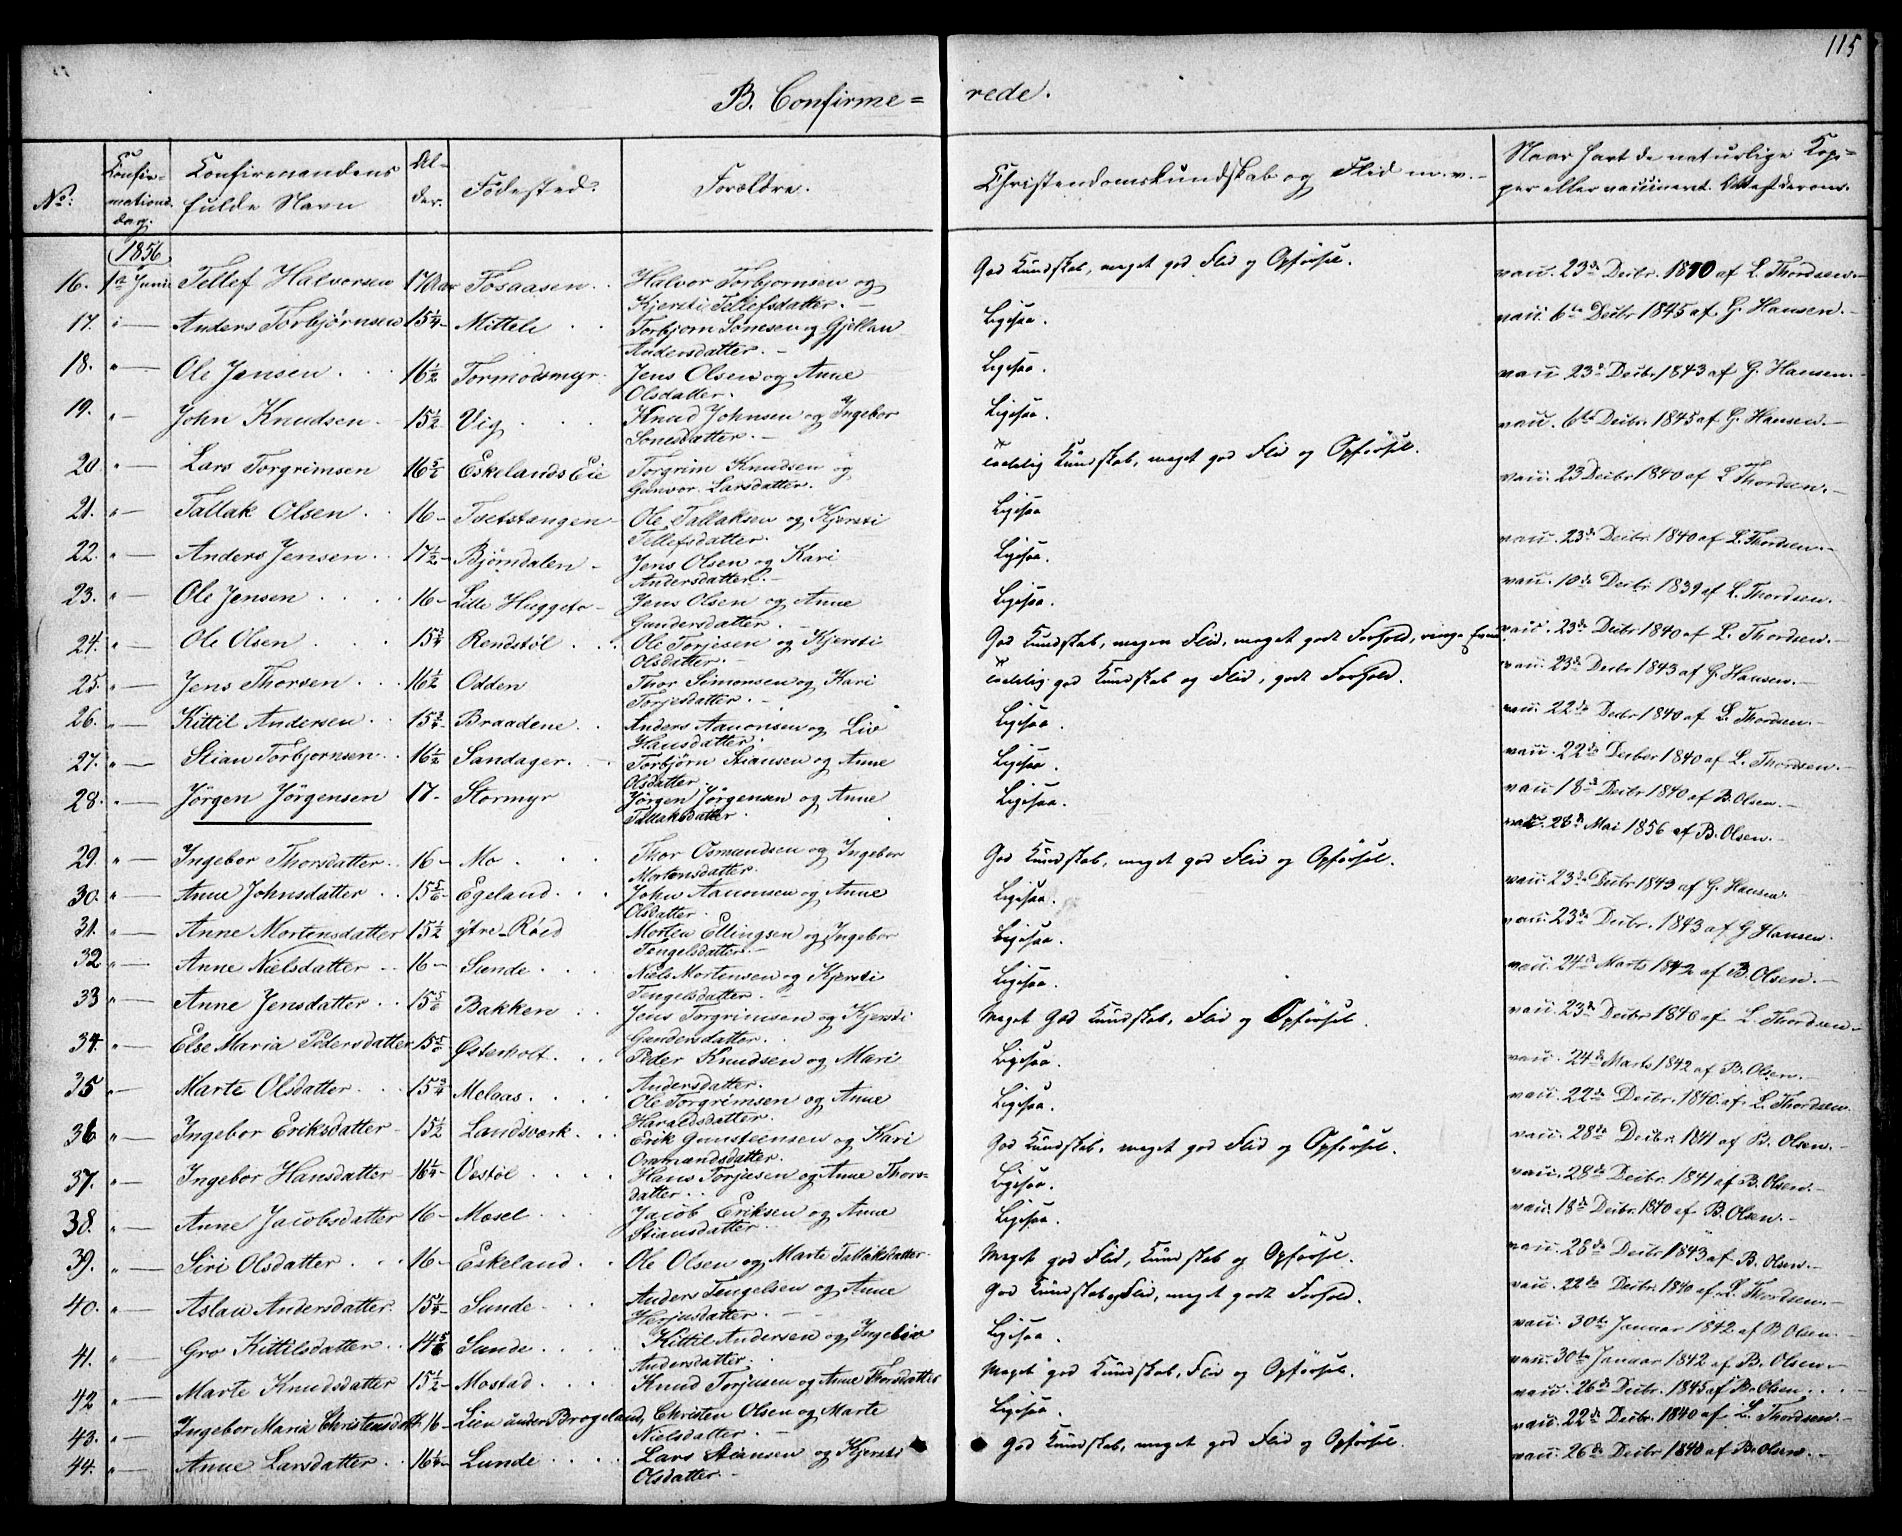 115
B. Confirme= rede.
No: Confirmations dag. Confirmandens fulde Navn Alder. Födested. Forældre. Christendomskundskab og Flid m.v. Naar havt de naturlige Kopper eller vaccineret
1856
16. 1ste Juni Tellef Halvorsen 17 Fosaasen Halvor Torbjornsen og Kjersti Tellefsdatter. God Kundskab, meget god Flid og Opførsel. vacc. 23de Decbr. 1840 af L. Thordsen.
17. " Anders Torbjørnsen 15 1/4 Mittele Torbjorn Sonesen og Gjellau Andersdatter. Ligesaa. vacc. 6te Decbr 1845 af G. Hansen.
18. " Ole Jensen 16 1/2 Tormodsmyr Jens Olsen og Anne Olsdatter. Ligesaa. vacc 23de Decbr. 1843 af G. Hansen.
19. " John Knudsen 15 1/2 Vig Knud Johnsen og Ingebor Sonesdatter. Ligesaa. vacc. 6te Decbr. 1845 af G. Hansen.
20. " Lars Torgrimsen 16 Eskelands Eie Torgrim Knudsen og Gunvor Larsdatter. Kundskab, meget god Flid og Opførsel. vacc. 23 Decbr 1840 af L Thordsen.
21. " Tallak Olsen 16 Tvetstangen Ole Tallaksen og Kjersti Tellefsdatter. Ligesaa vacc. 23de Decbr. 1840 af L. Thordsen.
22. " Anders Jensen 17 1/2 Bjørndalen Jens Olsen og Kari Andersdatter. Ligesaa. vacc. 10de Decbr. 1839 af L. Thordsen.
23. " Ole Jensen 16 Lille Huggeto Jens Olsen og Anne Gundersdatter. Ligesaa. vacc. 23de Decbr 1840 af L. Thordsen.
24. " Ole Olsen 15 3/4 Rendstøl Ole Torjesen og Kjersti Olsdatter. God Kundskab, megen Flid, meget godt Forhold, ringe vacc. 23de Decbr 1843 af G. Hansen.
25. " Jens Thorsen 16 1/2 Odden Thor Simonsen og Kari Torjesdatter. god Kundskab og Flid, godt Forhold. vacc. 22de Decbr 1840 af L. Thordsen.
26. " Kittil Andersen 15 3/4 Braadene Anders Aanonsen og Liv Hansdatter. Ligesaa. vacc. 22de Decber 1840 af L. Thordsen.
27. " Stian Torbjornsen 16 1/2 Sandager Torbjørn Stiansen og Anne Olsdatter. Ligesaa. vacc 18de Decbr 1840 af B. Olsen.
28. " Jörgen Jörgensen 17 Stormyr Jörgen Jörgensen og Anne Tallaksdatter. Ligesaa. vacc. 28de Mai 1856 af B. Olsen.
29. " Ingebor Thorsdatter 16 Mo Thor Osmundsen og Ingebor Mortensdatter. God Kundskab, meget god Flid og Opførsel. vacc. 23de Decbr 1843 af G. Hansen.
30. " Anne Johnsdatter 15 5/6 Egeland John Aanonsen og Anne Olsdatter. Ligesaa. vacc. 23de Decbr. 1843 af G Hansen.
31. " Anne Mortensdatter 15 1/2 ytre Röed Morten Ellingsen og Ingebor Tengelsdatter. Ligesaa. vacc. 24de Marts 1842 af B. Olsen.
32 " Anne Nielsdatter 16 Sunde Niels Mortensen og Kjersti Tengelsdatter. Ligesaa. vacc. 23de Decbr 1840 af L. Thordsen.
33 " Anne Jensdatter 15 5/6 Bakken Jens Torgrimsen og Kjersti Gundersdatter. Meget God Kundskab, Flid og Opførsel. vacc. 24de Marts 1842 af B. Olsen.
34. " Else Maria Pedersdatter 15 5/6 Østerholt Peder Knudsen og Mari Andersdatter. Ligesaa. vacc. 22de Decbr. 1840. af L. Thordsen.
35 " Marte Olsdatter 15 3/4 Melaas Ole Torgrimsen og Anne Haraldsdatter. Ligesaa. vacc. 28de Decbr. 1841 af B. Olsen.
36 " Ingebor Eriksdatter 15 1/2 Landsverk Erik Gunsteensen og Kari Ommundsdatter. God Kundskab, meget god Flid og Opførsel. vacc. 28de Decbr. 1841 af B. Olsen.
37. " Ingebor Hansdatter 16 1/4 Vestøl Hans Torjusen og Anne Thorsdatter. Ligesaa. vacc. 18de Decbr. 1840 af B. Olsen.
38. " Anne Jacobsdatter 16 Mosel Jacob Eriksen og Anne Stiansdatter. Ligesaa. vacc. 28de Decbr 1843 af B. Olsen.
39. " Siri Olsdatter 16 Eskeland Ole Olsen og Marte Tallaksdatter Meget god Flid, Kundskab og Opførsel. vacc. 22de Decbr. 1840 af L. Thordsen.
40. " Aslau Andersdatter 15 Sunde Anders Tengelsen og Anne Herjusdatter. God Kundskab og Flid, meget godt Forhold. vacc. 30te Januar 1842 af B. Olsen.
41. " Gro Kittilsdatter 14 5/6 Sunde Kittil Andersen og Ingebor Andersdatter. Ligesaa. vacc. 30te Januar 1842 af B. Olsen.
42 " Marte Knudsdatter 15 1/2 Mostad Knud Torjusen og Anne Thorsdatter Meget god Kundskab, Flid og Opførsel. vacc. 26de Decbr. 1845 af B. Olsen.
43. " Ingebor Maria Christensdatr 16 Lien under Brogeland, Christen Olsen og Marte Nielsdatter. Ligesaa. vacc. 22de Decbr. 1840 af L. Thordsen.
44. " Anne Larsdatter 16 1/4 Lunde Lars Stiansen og Kjersti Olsdatter. God Kundskab, meget god Flid og Opførsel. vacc. 26de Decbr. 1840 af B. Olsen.